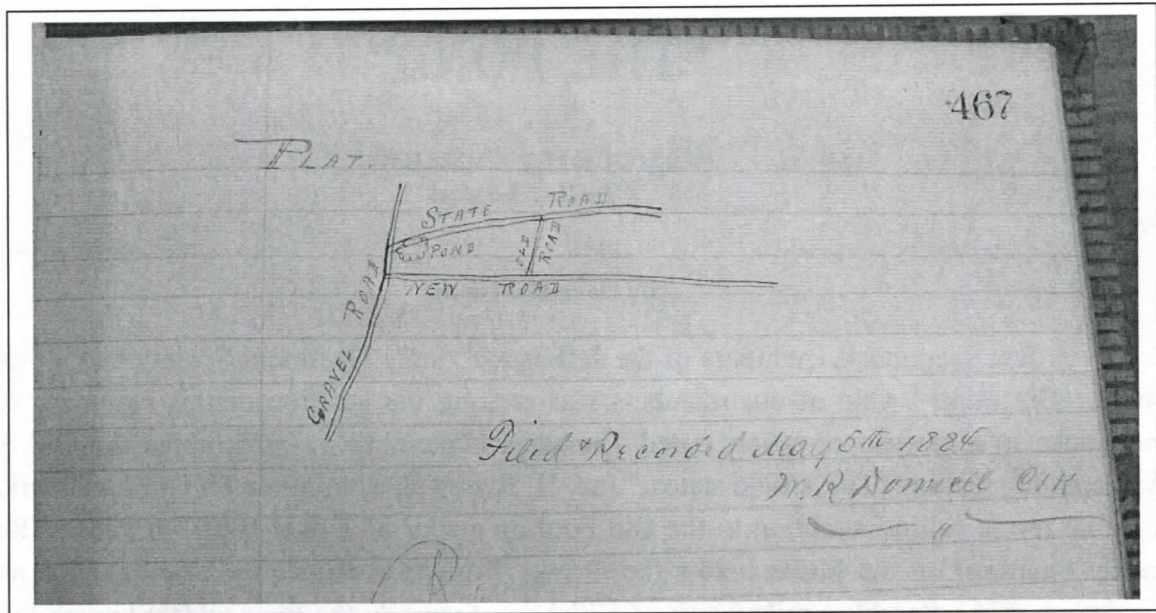 467
PLAT.
STATE ROAD
POND
OLD ROAD
NEW ROAD
GRAVEL ROAD
Filed & Recorded May 5th 1884
W. R. Donnell Clk